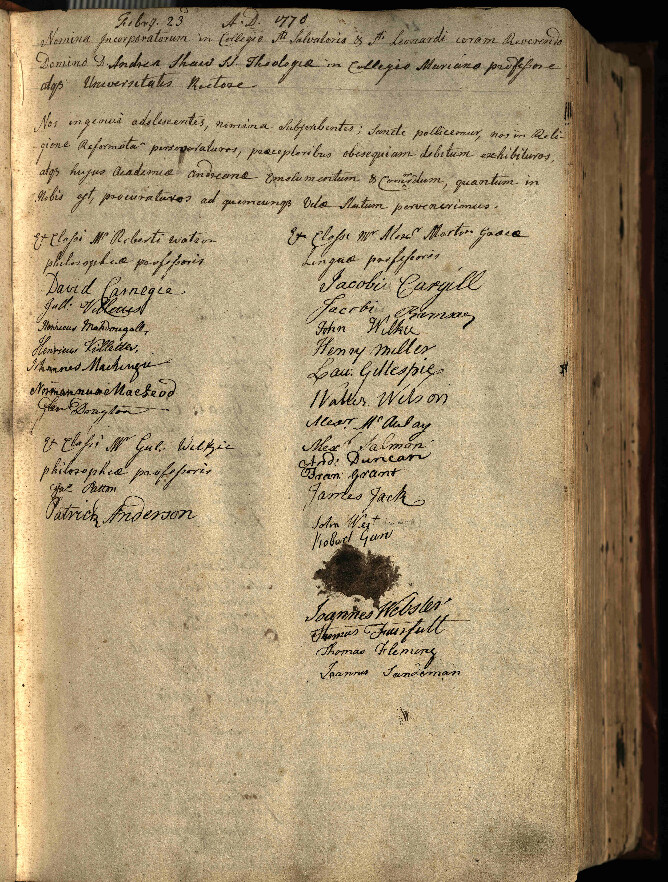 Febry. 23 A.D. 1770
Nomina Incorporatorum in Collegio Sti Salvatoris & Sti Leonardi coram Reverendo
Domino D. Andrea Shaw St. Theologiæ in Collegio Mariano professore
atqs Universitatis Rectore
Nos ingenui adolescentes, nomina subscribentes; sancte pollicemur, nos in Reli-
gione Reformata perseveraturos, præceptoribus obsequium debitum exhibituros,
atqs hujus Academiæ Andreanæ Emolumentum & Commodum, quantum in
Nobis est, procuraturos ad quemcunqs Vitæ Statum pervenerimus.
Ex Classi Mri Roberti Watson
philosophiæ professoris
David Carnegie
Henricus
Johannes Mackenzie
Normannus MacLeod
Ex Classi Mri Gul. Wilkie
philosophiæ professoris
Patton
Patrick Anderson
Ex Classi Mri Alexri Morton Græcæ
Linguæ professoris
Jacobus Cargill
Jacobus Ramsay
John Wilkie
Henry Miller
Lau. Gillespie
Walter Wilson
Alexr McAulay
Alexr Salmon
And. Duncan
Fran. Grant
James Jack
John West
Robert Gun
Joannes Webster
Thomas Fairfull
Thomas Fleming
Joannes Sandeman